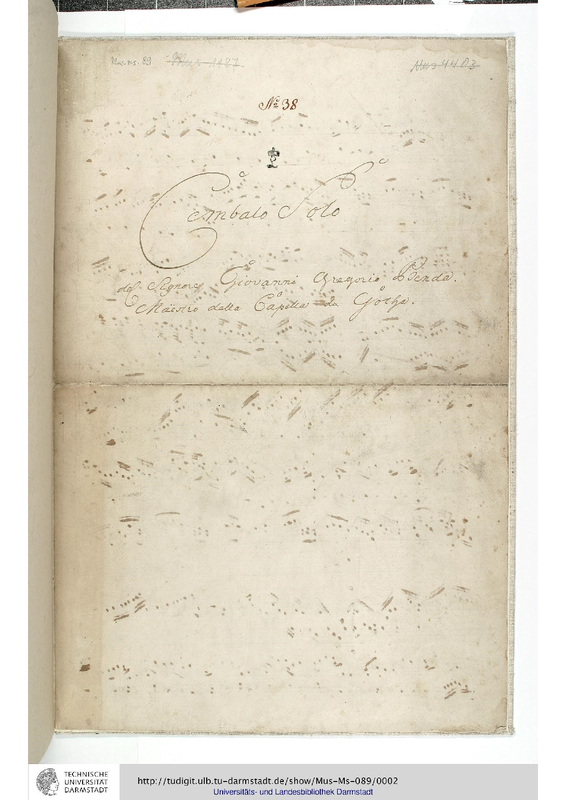 Mus. ms. 89 Mus 1127 Mus 4403
No. 38
Cembalo Solo
del Signore Giovanni Gregorio Benda.
Maestro della Capella da Gotha.
TECHNISCHE
UNIVERSITÄT
DARMSTADT
http://tudigit.ulb.tu-darmstadt.de/show/Mus-Ms-089/0002
Universitäts- und Landesbibliothek Darmstadt